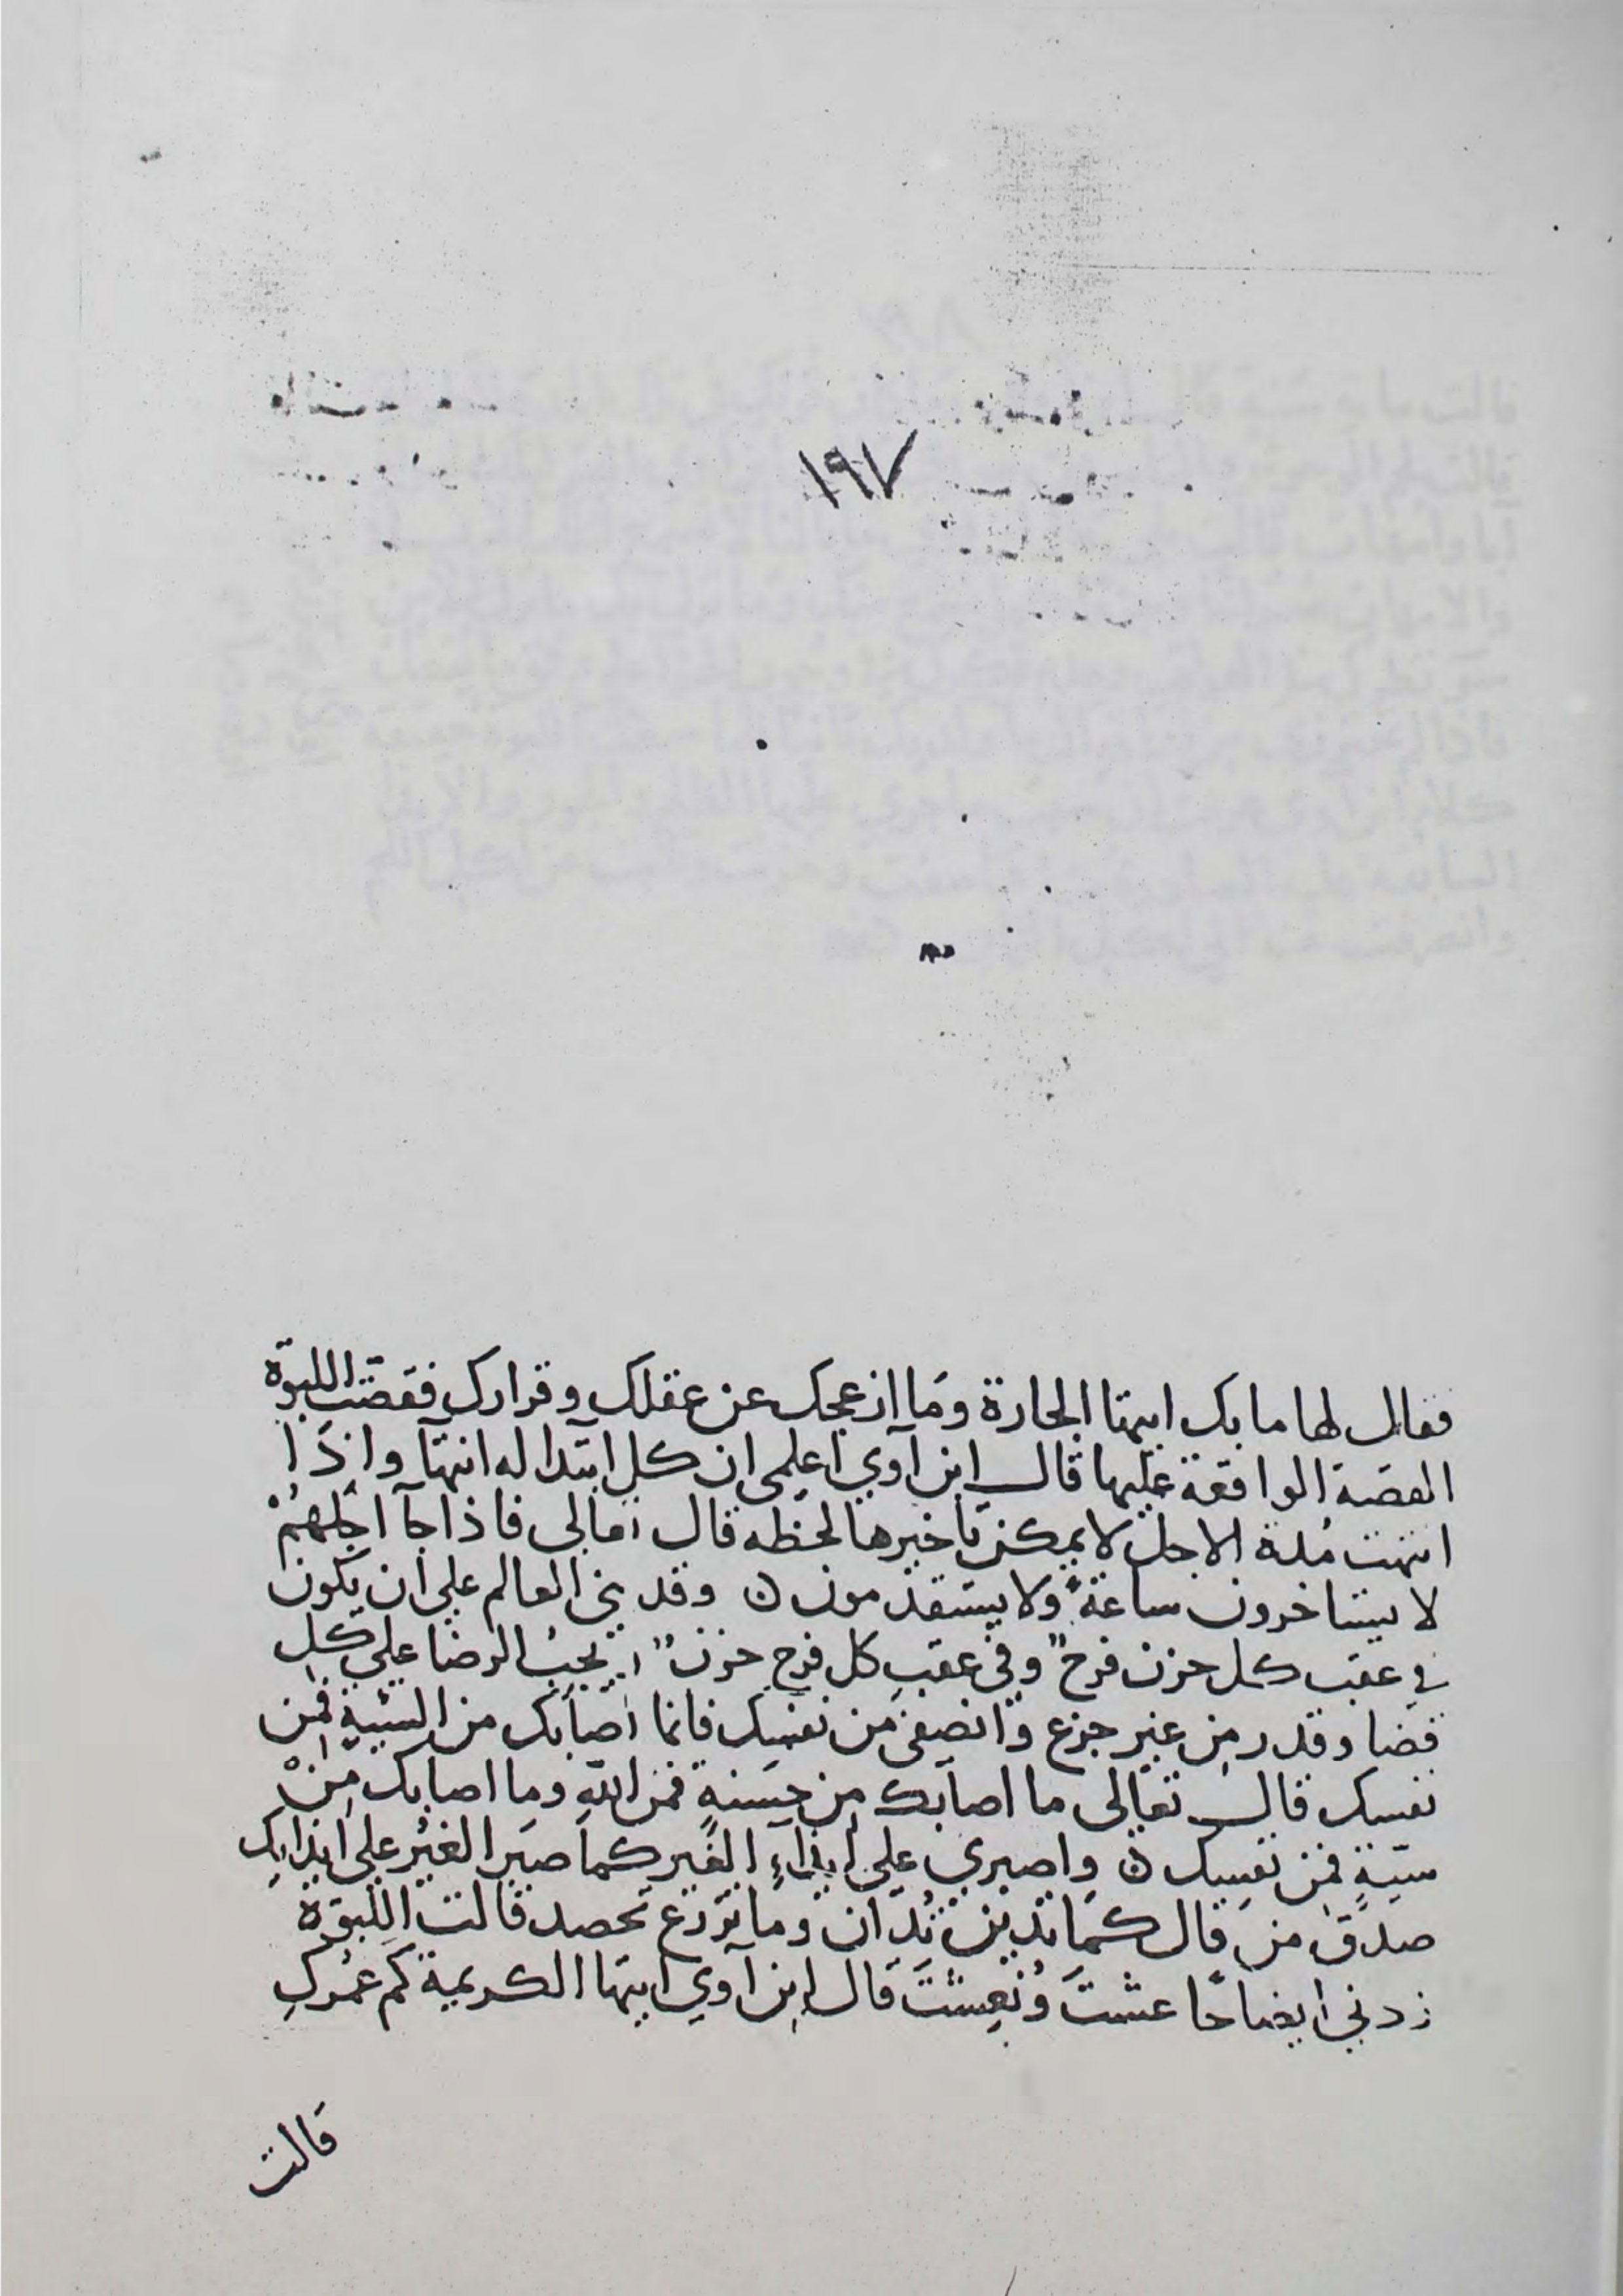 ١٩٧
فقال لها ما بك ايتها الجارة وَما ازعجك عن عقلك وقرارك فقصّت اللبوّة
القصة الواقعة عليها قال ابن آوي اعلمى ان كل ابتدا له انتهآ واذَا
انتهت مُدة الاجل لا يمكن تاخيرها لحظه قال تعالى فاذا جآ اجلهُمْ
لا يستاخرون ساعةً ولا يستقدمون ۞ وقد بني العالم علي ان يكون
في عقب كل حزن فرحٌ وفي عقب كل فرحٍ حزنٌ يجبُ الرضا علي كل
قضا وقدر من غير جزع وانصفى من نفسك فانما اصابك من السّيئةٍ فمن
نفسك قال تعالى ما اصابك من حسنةٍ فمن اللهِ وما اصابك مِنْ
سيّئةٍ فمن نفسك ۞ واصبري علي ايذاءِ الغير كما صبر الغيْر على ايذايك
صدق من قال كما تدين تُدان وما تزرع تحصد قالت اللبوّة
زدني ايضاحًا عشتَ ونُعِشتَ قال ابن آوي ايتها الكريمة كم عمرك
قالت